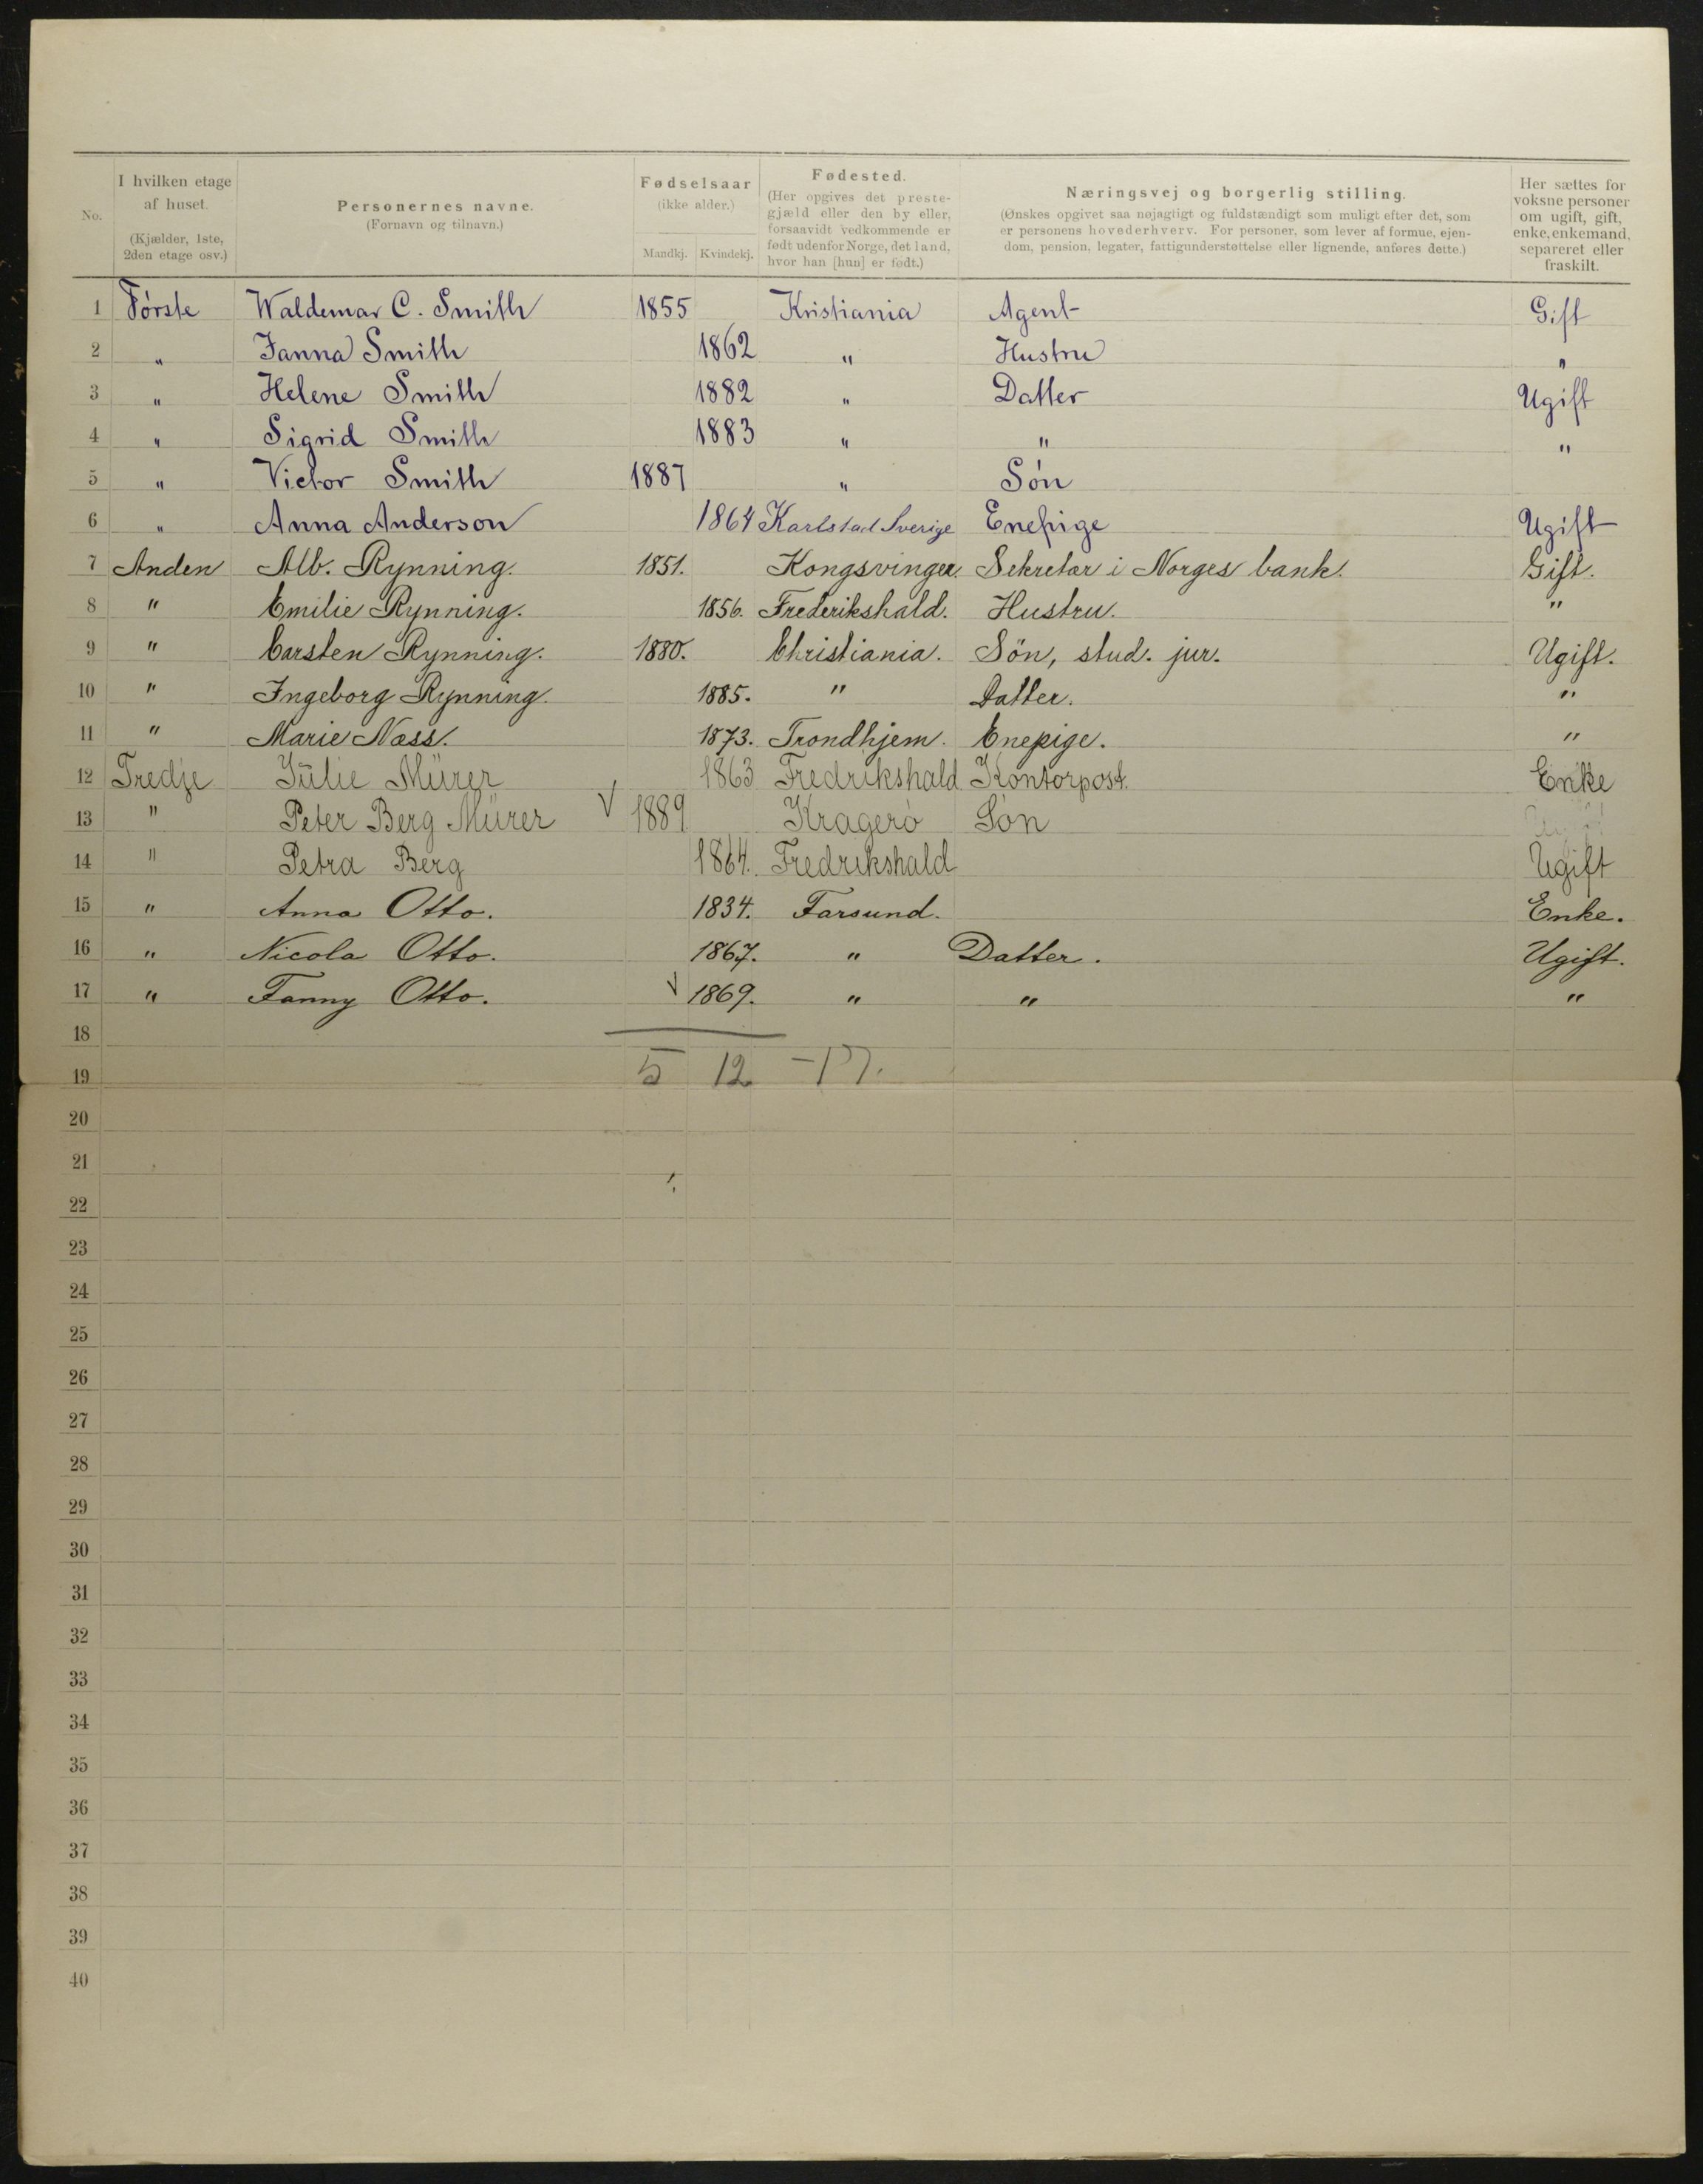 No.
I hvilken etage af huset.
(Kjælder, 1ste, 2den etage osv.)
Personernes navne.
(Fornavn og tilnavn.)
Fødselsaar
(ikke alder.)
Mandkj. Kvindekj.
Fødested.
(Her opgives det preste-
gjæld eller den by eller,
forsaavidt vedkommende er
født udenfor Norge, det land,
hvor han [hun] er født.)
Næringsvej og borgerlig stilling.
(Ønskes opgivet saa nøjagtigt og fuldstændigt som muligt efter det, som
er personens hovederhverv. For personer, som lever af formue, ejen-
dom, pension, legater, fattigunderstøttelse eller lignende, anføres dette.)
Her sættes for
voksne personer
om ugift, gift,
enke, enkemand,
separeret eller
fraskilt.
1 Første Waldemar C. Smith 1855 Kristiania Agent Gift
2 " Janna Smith 1862 " Hustru "
3 " Helene Smith 1882 " Datter Ugift
4 " Sigrid Smith 1883 " " "
5 " Victor Smith 1887 " Søn
6 " Anna Anderson 1864 Karlstad Sverige Enepige Ugift
7 Anden Alb. Rynning. 1851. Kongsvinger. Sekretær i Norges bank. Gift.
8 " Emilie Rynning. 1856. Frederikshald. Hustru. "
9 " Carsten Rynning. 1880. Christiania. Søn, stud. jur. Ugift.
10 " Ingeborg Rynning. 1885. " Datter. "
11 " Marie Næss. 1873. Trondhjem. Enepige. "
12 Tredje Jülie Mürer 1863 Fredrikshald Kontorpost. Enke
13 " Peter Berg Mürer V 1889 Kragerø Søn
14 " Petra Berg 1864. Fredrikshald Ugift
15 " Anna Otto. 1834. Farsund. Enke.
16 " Nicola Otto. 1867. " Datter. Ugift.
17 " Fanny Otto. V 1869. " " "
18
19 5 12 - 17.
20
21
22
23
24
25
26
27
28
29
30
31
32
33
34
35
36
37
38
39
40